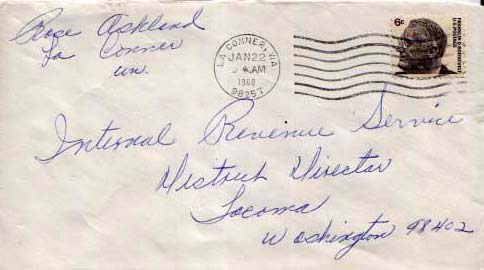 Rose Ashland
La Conner
Wn.
LA CONNER, WA
JAN 22
AM
1968
98257
6¢
FRANKLIN D. ROOSEVELT
U.S. POSTAGE
Internal Revenue Service
District Director
Tacoma
Washington 98402